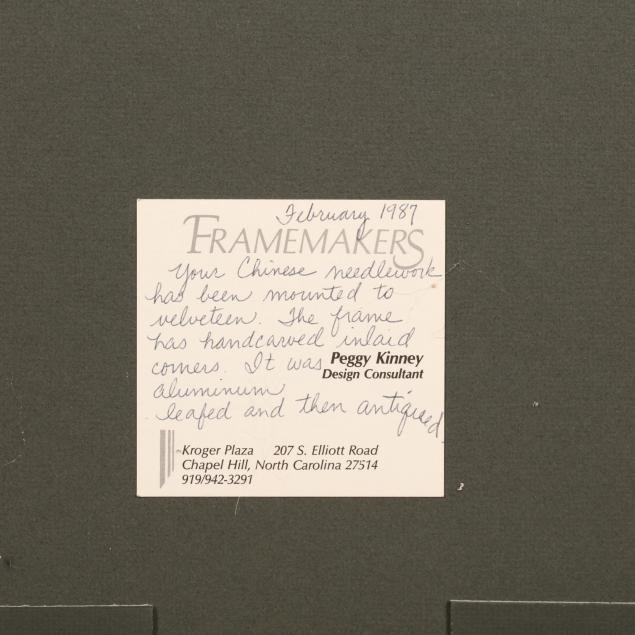 February 1987
FRAMEMAKERS
Your Chinese needlework
has been mounted to
velveteen. The frame
has handcarved inlaid
corners. It was
Peggy Kinney
Design Consultant
aluminum
leafed and then antiqued.
Kroger Plaza 207 S. Elliott Road
Chapel Hill, North Carolina 27514
919/942-3291